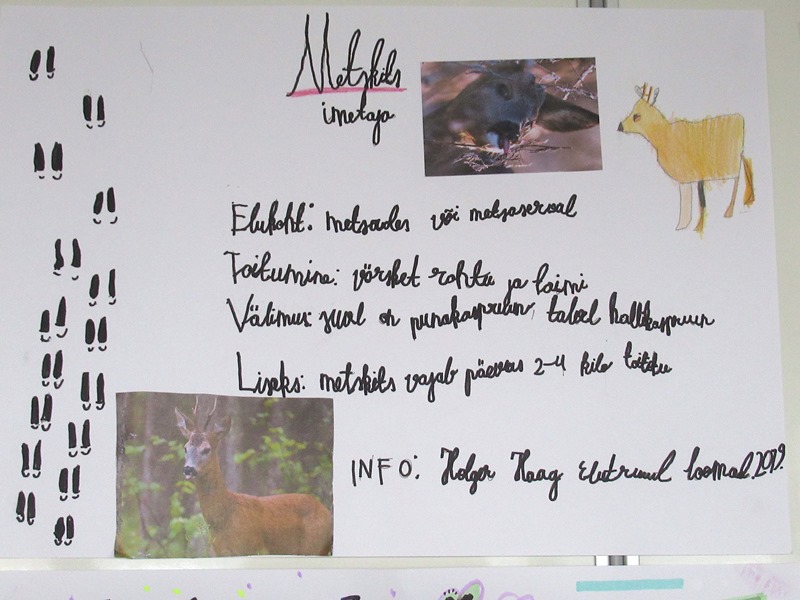 Metskits
imetaja
Elukoht: metsades või metsaserval
Toitumine: värsket rohtu ja taimi
Välimus: suvel on punakaspruun, talvel hallikaspruun
Liseks: metskits vajab päevas 2-4 kilo toitu
INFO: Holger Haag Elutruud loomad. 2019.